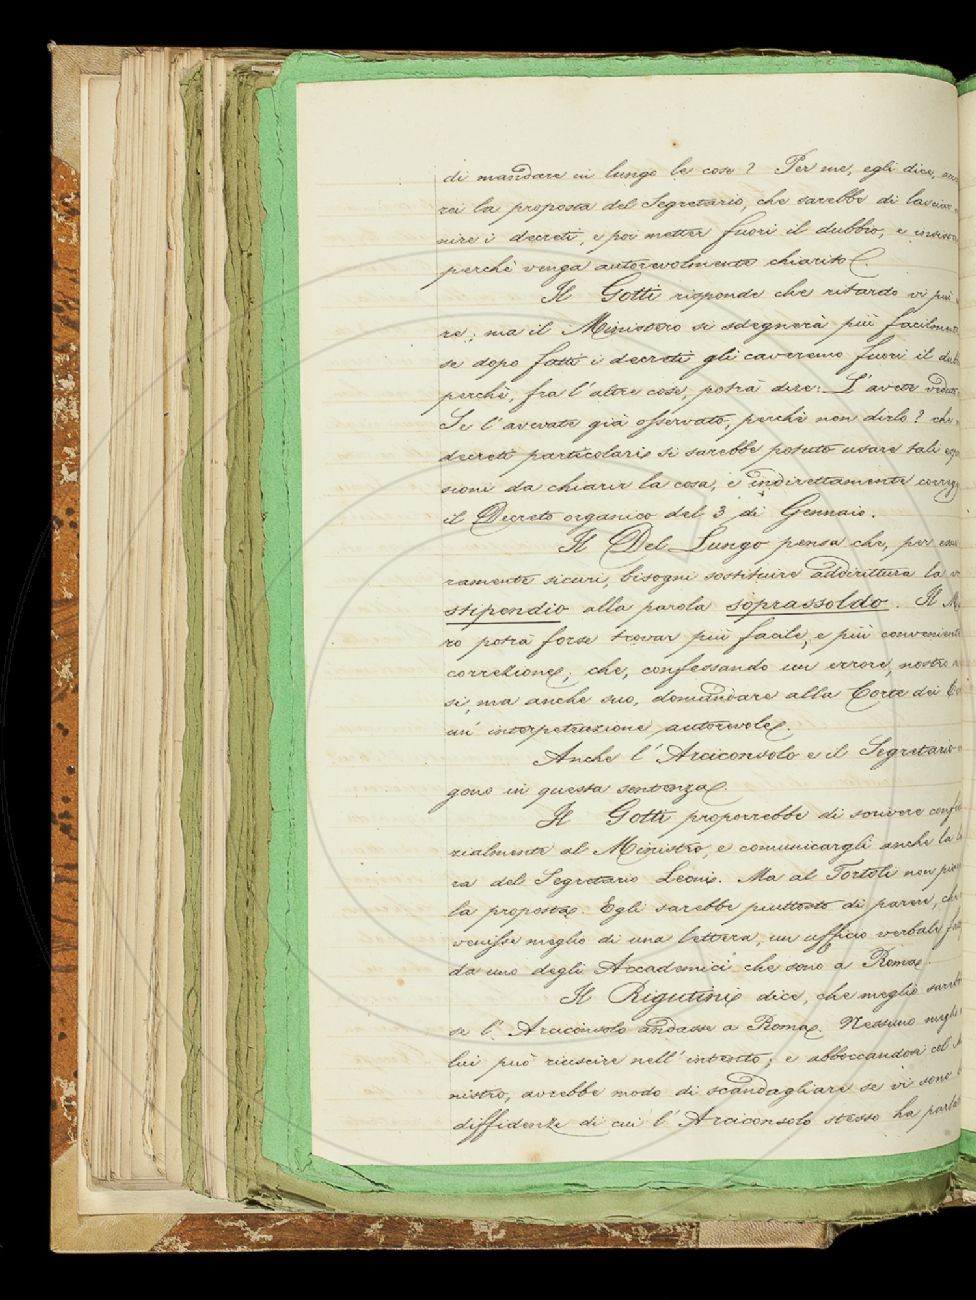 di mandare in lungo le cose? Per me, egli dice,
rei la proposta del Segretario, che sarebbe di lasciar
nire i decreti, e poi metter fuori il dubbio, e
perchè venga autorevolmente chiarito.
Il Gotti risponde che ritardo vi può
re; ma il Ministero si sdegnerà più facilmente
se dopo fatti i decreti gli caveremo fuori il
perchè, fra l'altre cose, potrà dire: L'avete veduto
Se l'avevate già osservato, perchè non dirlo? che
decreti particolari si sarebbe potuto usare tali
sioni da chiarir la cosa, e indirettamente
il Decreto organico del 3 di Gennaio.
Il Del Lungo pensa che, per
ramente sicuri, bisogni sostituire addirittura la
stipendio alla parola soprassoldo. Il
ro potrà forse trovar più facile, e più conveniente
correzione, che, confessando un errore, nostro
sì, ma anche suo, domandare alla Corte dei
un' interpetrazione autorevole.
Anche l'Arciconsolo e il Segretario
gono in questa sentenza.
Il Gotti proporrebbe di scrivere
zialmente al Ministro, e comunicargli anche la
ra del Segretario Leoni. Ma al Tortoli non
la proposta. Egli sarebbe piuttosto di parere, che
venisse meglio di una lettera, un ufficio verbale
da uno degli Accademici che sono a Roma.
Il Rigutini dice, che meglio
se l'Arciconsolo andasse a Roma. Nessuno meglio
lui può riuscire nell'intento; e abboccandosi col
nistro, avrebbe modo di scandagliare se vi sono
diffidenze di cui l'Arciconsolo stesso ha